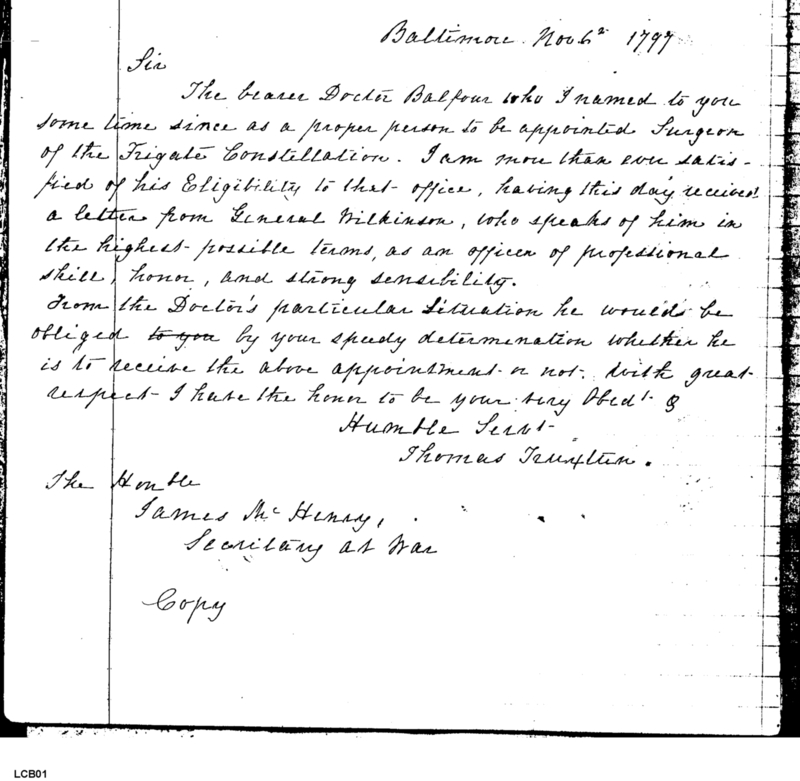 Baltimore Nov 6th 1797
Sir
The bearer Doctor Balfour who I named to you
some time since as a proper person to be appointed Surgeon
of the Frigate Constellation. I am more than ever satis-
fied of his Eligibility to that office, having this day received
a letter from General Wilkinson, who speaks of him in
the highest possible terms, as an officer of professional
skill, honor, and strong sensibility.
From the Doctor's particular Situation he would be
obliged to you by your speedy determination whether he
is to receive the above appointment or not. With great
respect I have the honor to be your very Obedt &
Humble Servt
Thomas Truxtun.
The Honble
James McHenry,
Secretary at War
Copy
LCB01